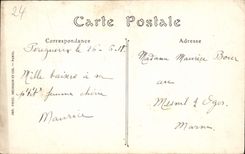 24
Carte Postale
Correspondance
Adresse
Mille baisers à ma
p'tit' femme chérie
Maurice
Madame Maurice Bover
Mesnil s/ Oger
Marne